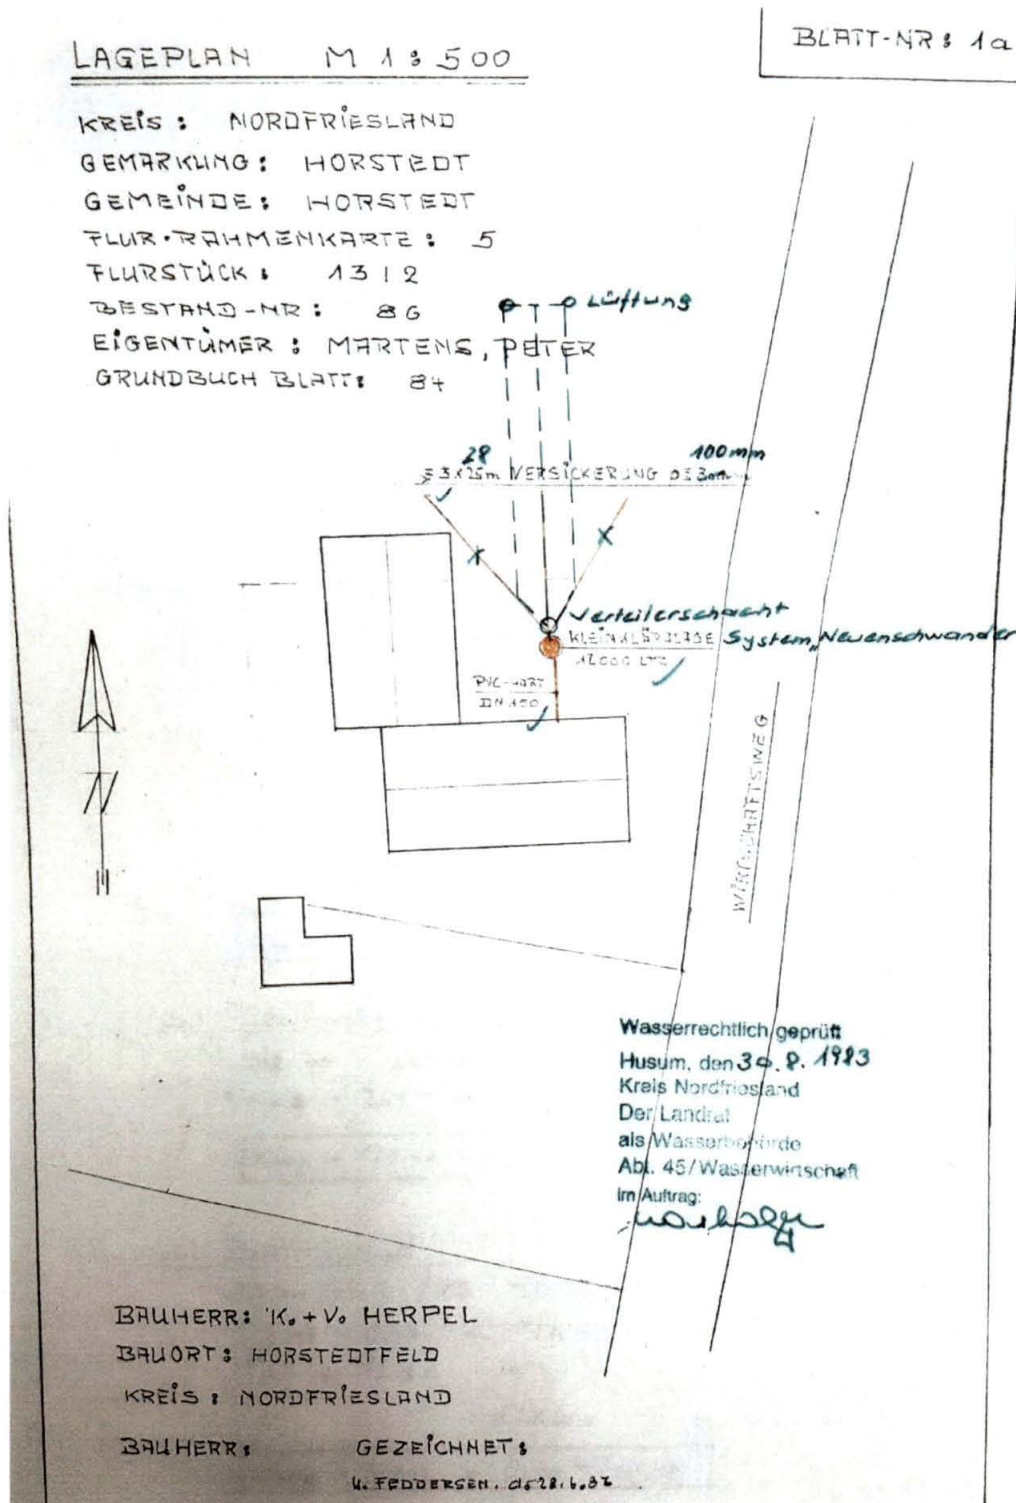 LAGEPLAN M 1:500
BLATT-NR: 1a
KREIS: NORDFRIESLAND
GEMARKUNG: HORSTEDT
GEMEINDE: HORSTEDT
FLUR-RAHMENKARTE: 5
FLURSTÜCK: 13/2
BESTAND-NR: 86
EIGENTÜMER: MARTENS, PETER
GRUNDBUCH BLATT: 84
Lüftung
28 100mm
3x25m VERSICKERUNG
Verteilerschacht
KLEINKLÄRANLAGE System „Neuenschwander
12000 LTR
PVC-HART
DN 150
WIRTSCHAFTSWEG
N
Wasserrechtlich geprüft
Husum, den 30.8.1983
Kreis Nordfriesland
Der Landrat
als Wasserbehörde
Abt. 45/Wasserwirtschaft
Im Auftrag:
BAUHERR: K. + V. HERPEL
BAUORT: HORSTEDTFELD
KREIS: NORDFRIESLAND
BAUHERR: GEZEICHNET:
FEDDERSEN.